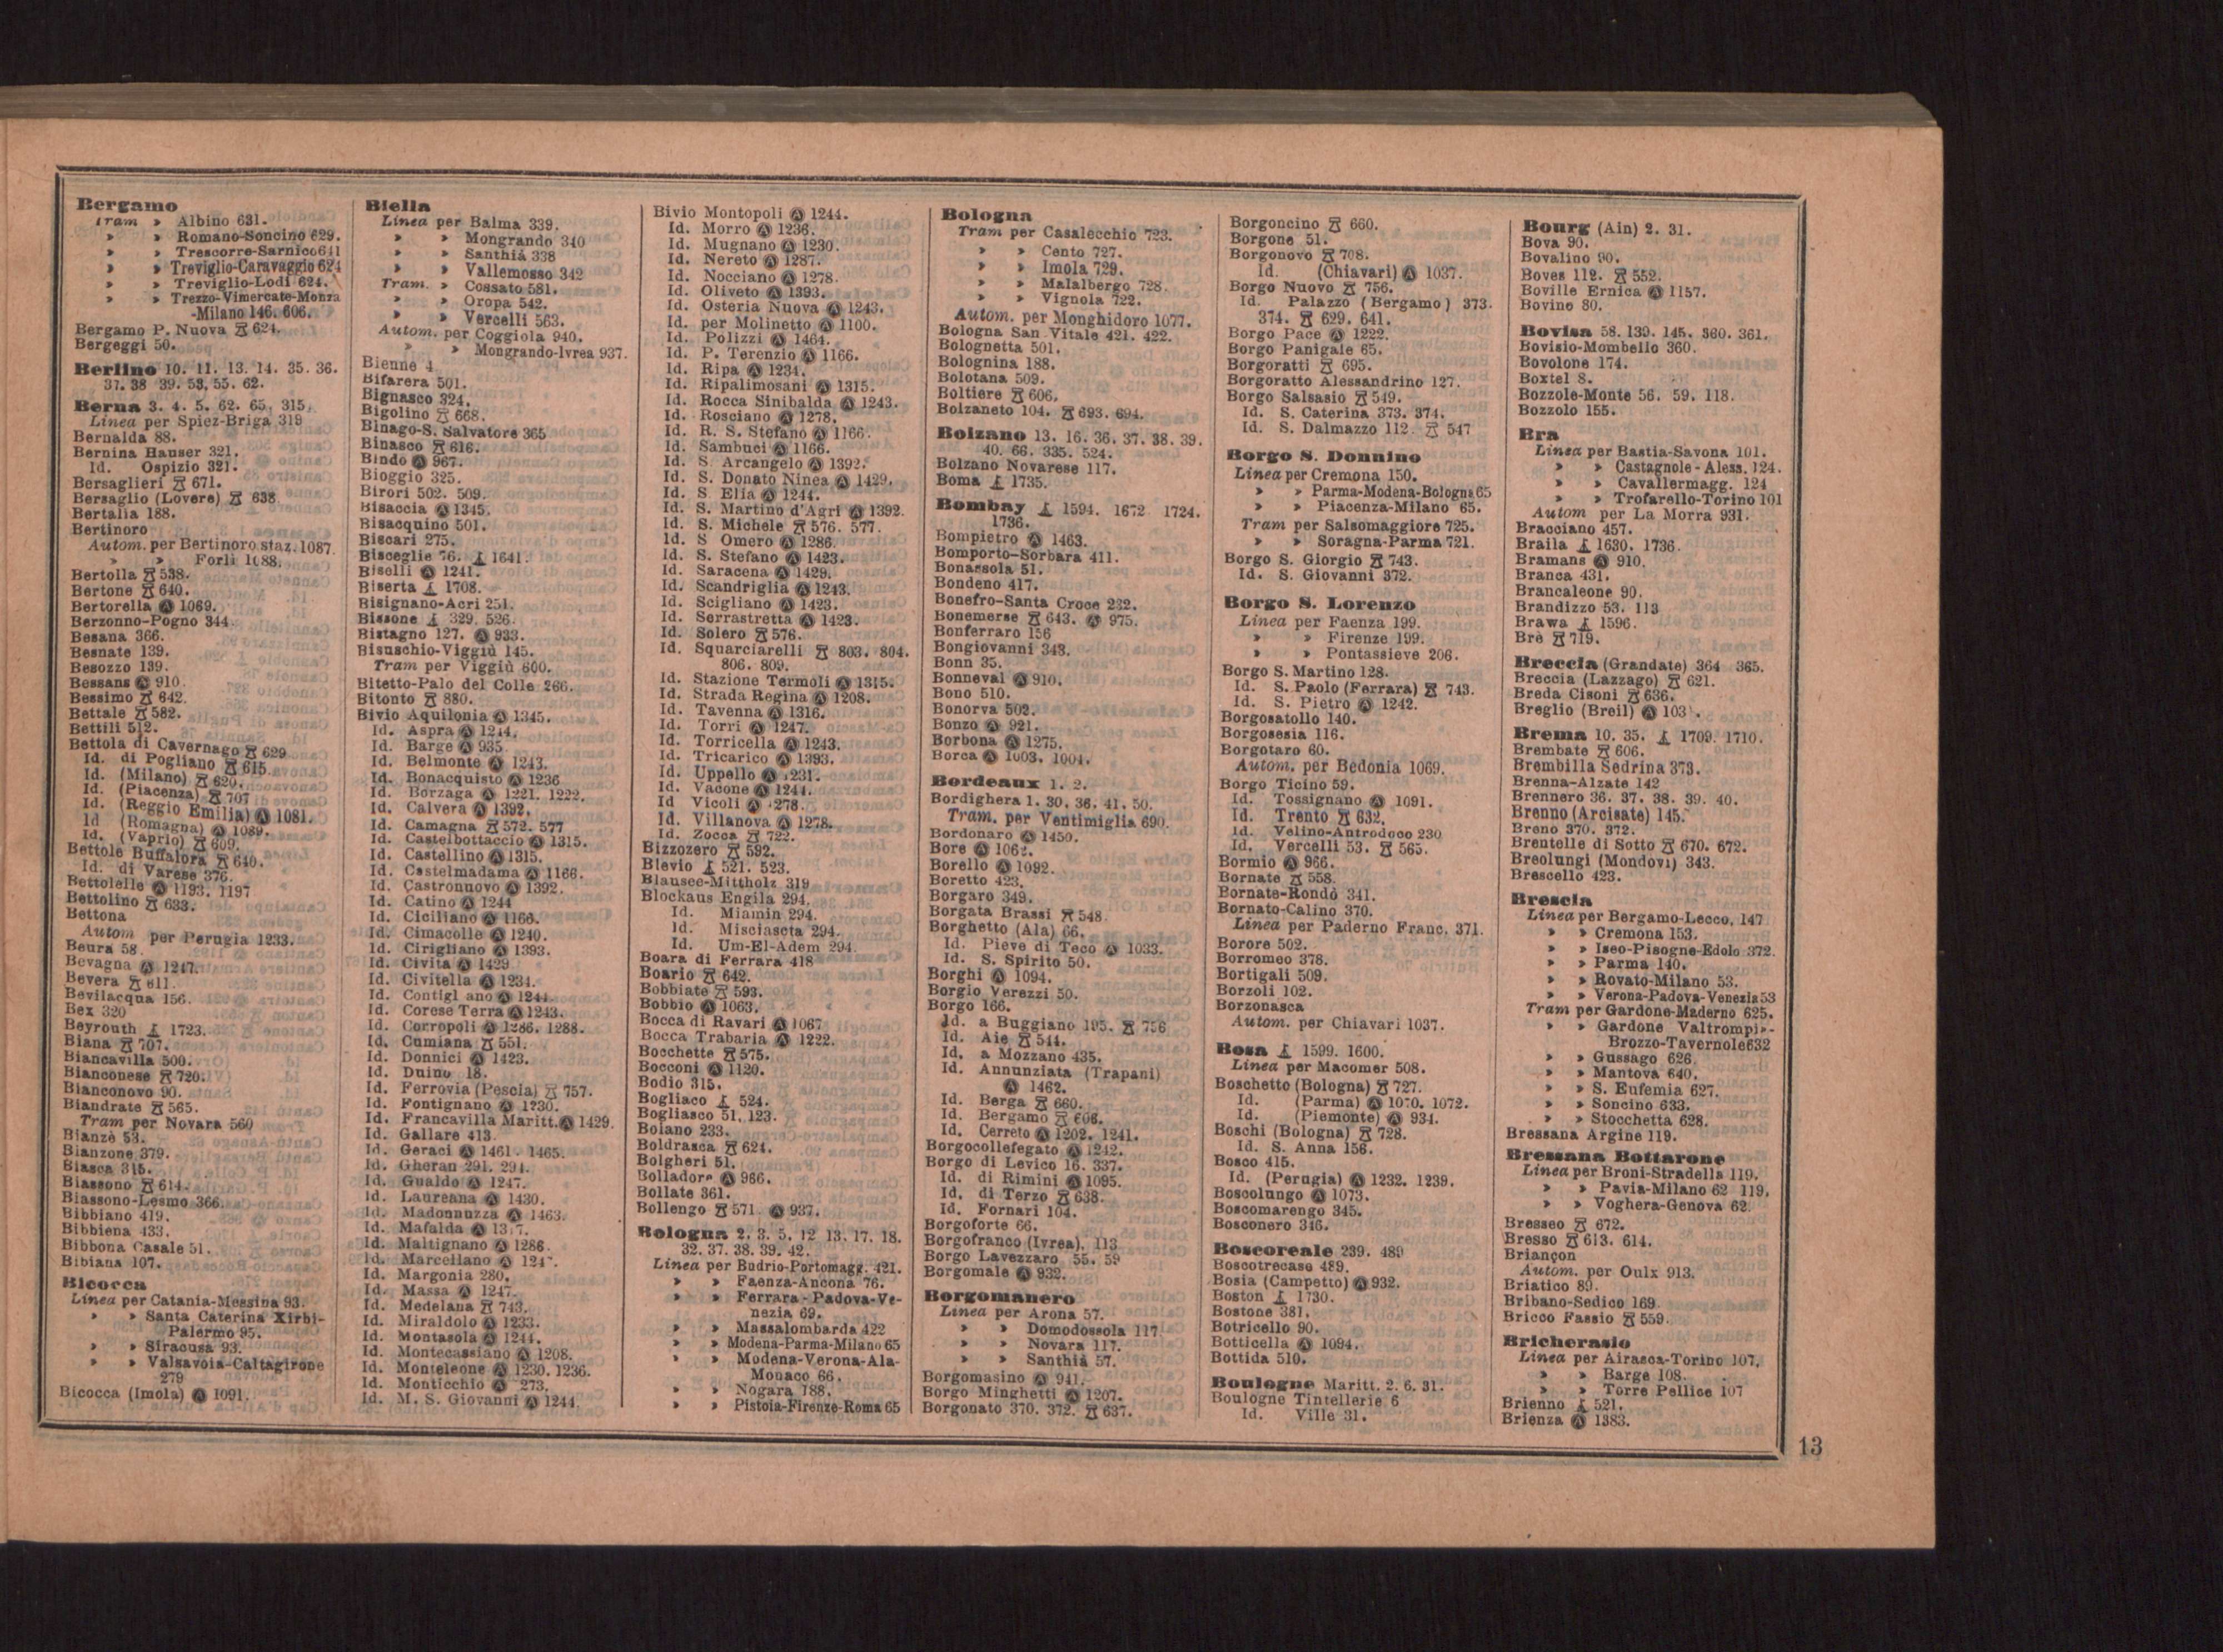 Bergamo
Tram » Albino 631.
» » Romano-Soncino 629.
» » Trescorre-Sarnico 641
» » Treviglio-Caravaggio 624
» » Treviglio-Lodi 624.
» » Trezzo-Vimercate-Monza
-Milano 146. 606.
Bergamo P. Nuova 624.
Bergeggi 50.
Berlino 10. 11. 13. 14. 35. 36.
37. 38 39. 53. 55. 62.
Berna 3. 4. 5. 62. 65. 315.
Linea per Spiez-Briga 319
Bernalda 88.
Bernina Hauser 321.
Id. Ospizio 321.
Bersaglieri 671.
Bersaglio (Lovere) 638
Bertalia 188.
Bertinoro
Autom. per Bertinoro staz. 1087.
» » Forlì 1088.
Bertolla 538.
Bertone 640.
Bertorella 1069.
Berzonno-Pogno 344
Besana 366.
Besnate 139.
Besozzo 139.
Bessans 910.
Bessimo 642.
Bettale 582.
Bettili 512.
Bettola di Cavernago 629
Id. di Pogliano 615.
Id. (Milano) 620.
Id. (Piacenza) 707
Id. (Reggio Emilia) 1081.
Id (Romagna) 1089.
Id. (Vaprio) 609.
Bettole Buffalora 640.
Id. di Varese 376.
Bettolelle 1193. 1197
Bettolino 633.
Bettona
Autom per Perugia 1233.
Beura 58.
Bevagna 1247.
Bevera 611.
Bevilacqua 156.
Bex 320
Beyrouth 1723.
Biana 707.
Biancavilla 500.
Bianconese 720.
Bianconovo 90.
Biandrate 565.
Tram per Novara 560
Bianzè 53.
Bianzone 379.
Biasca 315.
Biassono 614.
Biassono-Lesmo 366.
Bibbiano 419.
Bibbiena 433.
Bibbona Casale 51.
Bibiana 107.
Bicocca
Linea per Catania-Messina 93.
» » Santa Caterina Xirbi-
Palermo 95.
» » Siracusa 93.
» » Valsavoia-Caltagirone
279
Bicocca (Imola) 1091.
Biella
Linea per Balma 339.
» » Mongrando 340
» » Santhià 338
» » Vallemosso 342
Tram. » Cossato 581.
» » Oropa 542.
» » Vercelli 563.
Autom. per Coggiola 940.
» » Mongrando-Ivrea 937.
Bienne 4
Bifarera 501.
Bignasco 324.
Bigolino 668.
Binago-S. Salvatore 365
Binasco 616.
Bindo 967.
Bioggio 325.
Birori 502. 509.
Bisaccia 1345.
Bisacquino 501.
Biscari 275.
Bisceglie 76. 1641.
Biselli 1241.
Biserta 1708.
Bisignano-Acri 251.
Bissone 329. 526.
Bistagno 127. 933.
Bisuschio-Viggiù 145.
Tram per Viggiù 600.
Bitetto-Palo del Colle 266.
Bitonto 880.
Bivio Aquilonia 1345.
Id. Aspra 1244.
Id. Barge 935
Id. Belmonte 1243.
Id. Bonacquisto 1236
Id. Borzaga 1221. 1222.
Id. Calvera 1392.
Id. Camagna 572. 577
Id. Castelbottaccio 1315.
Id. Castellino 1315.
Id. Castelmadama 1166.
Id. Castronuovo 1392.
Id. Catino 1244
Id. Ciciliano 1166.
Id. Cimacolle 1240.
Id. Cirigliano 1393.
Id. Civita 1429
Id. Civitella 1234.
Id. Contigl ano 1244
Id. Corese Terra 1243.
Id. Corropoli 1286. 1288.
Id. Cumiana 551.
Id. Donnici 1423.
Id. Duino 18.
Id. Ferrovia (Pescia) 757.
Id. Fontignano 1230.
Id. Francavilla Maritt. 1429.
Id. Gallare 413.
Id. Geraci 1461. 1465.
Id. Gheran 291. 294.
Id. Gualdo 1247.
Id. Laureana 1430.
Id. Madonnuzza 1463.
Id. Mafalda
Id. Maltignano 1286.
Id. Marcellano
Id. Margonia 280.
Id. Massa 1247.
Id. Medelana 743.
Id. Miraldolo 1233.
Id. Montasola 1244.
Id. Montecassiano 1208.
Id. Monteleone 1230. 1236.
Id. Monticchio 273.
Id. M. S. Giovanni 1244
Bivio Montopoli 1244.
Id. Morro 1236.
Id. Mugnano 1230.
Id. Nereto 1287.
Id. Nocciano 1278.
Id. Oliveto 1393.
Id. Osteria Nuova 1243.
Id. per Molinetto 1100.
Id. Polizzi 1464.
Id. P. Terenzio 1166.
Id. Ripa 1234.
Id. Ripalimosani 1315.
Id. Rocca Sinibalda 1243.
Id. Rosciano 1278.
Id. R. S. Stefano 1166.
Id. Sambuci 1166.
Id. S. Arcangelo 1392.
Id. S. Donato Ninea 1429.
Id. S Elia 1244.
Id. S. Martino d'Agri 1392.
Id. S. Michele 576. 577.
Id. S Omero 1286.
Id. S. Stefano 1423.
Id. Saracena 1429.
Id. Scandriglia 1243.
Id. Scigliano 1423.
Id. Serrastretta 1423.
Id. Solero 576.
Id. Squarciarelli 803. 804.
806. 809.
Id. Stazione Termoli 1315.
Id. Strada Regina 1208.
Id. Tavenna 1316.
Id. Torri 1247.
Id. Torricella 1243.
Id. Tricarico 1393.
Id. Uppello 1231.
Id. Vacone 1244.
Id Vicoli 1278.
Id. Villanova 1278.
Id. Zocca 722.
Bizzozero 592.
Blevio 521. 523.
Blausee-Mittholz 319
Blockaus Engila 294.
Id. Miamin 294.
Id. Misciascta 294.
Id. Um-El-Adem 294.
Boara di Ferrara 418
Boario 642.
Bobbiate 593.
Bobbio 1063.
Bocca di Ravari 1067
Bocca Trabaria 1222.
Bocchette 575.
Bocconi 1120.
Bodio 315.
Bogliaco 524.
Bogliasco 51. 123.
Boiano 233.
Boldrasca 624.
Bolgheri 51.
Bolladore 966.
Bollate 361.
Bollengo 571. 937.
Bologna 2. 3. 5. 12 13. 17. 18.
32. 37. 38. 39. 42.
Linea per Budrio-Portomagg. 421.
» » Faenza-Ancona 76.
» » Ferrara-Padova-Ve-
nezia 69.
» » Massalombarda 422
» » Modena-Parma-Milano 65
» » Modena-Verona-Ala-
Monaco 66.
» » Nogara 188.
» » Pistoia-Firenze-Roma 65
Bologna
Tram per Casalecchio 723.
» » Cento 727.
» » Imola 729.
» » Malalbergo 728.
» » Vignola 722.
Autom. per Monghidoro 1077.
Bologna San Vitale 421. 422.
Bolognetta 501.
Bolognina 188.
Bolotana 509.
Boltiere 606.
Bolzaneto 104. 693. 694.
Bolzano 13. 16. 36. 37. 38. 39.
40. 66. 335. 524.
Bolzano Novarese 117.
Boma 1735.
Bombay 1594. 1672 1724.
1736.
Bompietro 1463.
Bomporto-Sorbara 411.
Bonassola 51.
Bondeno 417.
Bonefro-Santa Croce 232.
Bonemerse 643. 975.
Bonferraro 156
Bongiovanni 343.
Bonn 35.
Bonneval 910.
Bono 510.
Bonorva 502.
Bonzo 921.
Borbona 1275.
Borca 1003. 1004.
Bordeaux 1. 2.
Bordighera 1. 30. 36. 41. 50.
Tram. per Ventimiglia 690.
Bordonaro 1450.
Bore 1062.
Borello 1092.
Boretto 423.
Borgaro 349.
Borgata Brassi 548.
Borghetto (Ala) 66.
Id. Pieve di Teco 1033.
Id. S. Spirito 50.
Borghi 1094.
Borgio Verezzi 50.
Borgo 166.
Id. a Buggiano 195. 756
Id. Aie 544.
Id. a Mozzano 435.
Id. Annunziata (Trapani)
1462.
Id. Berga 660.
Id. Bergamo 606.
Id. Cerreto 1202. 1241.
Borgocollefegato 1242.
Borgo di Levico 16. 337.
Id. di Rimini 1095.
Id. di Terzo 638.
Id. Fornari 104.
Borgoforte 66.
Borgofranco (Ivrea). 113
Borgo Lavezzaro 55. 59
Borgomale 932.
Borgomanero
Linea per Arona 57.
» » Domodossola 117
» » Novara 117.
» » Santhià 57.
Borgomasino 941.
Borgo Minghetti 1207.
Borgonato 370. 372. 637.
Borgoncino 660.
Borgone 51.
Borgonovo 708.
Id. (Chiavari) 1037.
Borgo Nuovo 756.
Id. Palazzo (Bergamo) 373.
374. 629. 641.
Borgo Pace 1222.
Borgo Panigale 65.
Borgoratti 695.
Borgoratto Alessandrino 127.
Borgo Salsasio 549.
Id. S. Caterina 373. 374.
Id. S. Dalmazzo 112. 547
Borgo S. Donnino
Linea per Cremona 150.
» » Parma-Modena-Bologna 65
» » Piacenza-Milano 65.
Tram per Salsomaggiore 725.
» » Soragna-Parma 721.
Borgo S. Giorgio 743.
Id. S. Giovanni 372.
Borgo S. Lorenzo
Linea per Faenza 199.
» » Firenze 199.
» » Pontassieve 206.
Borgo S. Martino 128.
Id. S. Paolo (Ferrara) 743.
Id. S. Pietro 1242.
Borgosatollo 140.
Borgosesia 116.
Borgotaro 60.
Autom. per Bedonia 1069.
Borgo Ticino 59.
Id. Tossignano 1091.
Id. Trento 632.
Id. Velino-Antrodoco 230
Id. Vercelli 53. 565.
Bormio 966.
Bornate 558.
Bornate-Rondò 341.
Bornato-Calino 370.
Linea per Paderno Franc. 371.
Borore 502.
Borromeo 378.
Bortigali 509.
Borzoli 102.
Borzonasca
Autom. per Chiavari 1037.
Bosa 1599. 1600.
Linea per Macomer 508.
Boschetto (Bologna) 727.
Id. (Parma) 1070. 1072.
Id. (Piemonte) 934.
Boschi (Bologna) 728.
Id. S. Anna 156.
Bosco 415.
Id. (Perugia) 1232. 1239.
Boscolungo 1073.
Boscomarengo 345.
Bosconero 346.
Boscoreale 239. 489
Boscotrecase 489.
Bosia (Campetto) 932.
Boston 1730.
Bostone 381.
Botricello 90.
Botticella 1094.
Bottida 510.
Boulogne Maritt. 2. 6. 31.
Boulogne Tintellerie 6
Id. Ville 31.
Bourg (Ain) 2. 31.
Bova 90.
Bovalino 90.
Boves 112. 552.
Boville Ernica 1157.
Bovino 80.
Bovisa 58. 139. 145. 360. 361.
Bovisio-Mombello 360.
Bovolone 174.
Boxtel 8.
Bozzole-Monte 56. 59. 118.
Bozzolo 155.
Bra
Linea per Bastia-Savona 101.
» » Castagnole-Aless. 124.
» » Cavallermagg. 124
» » Trofarello-Torino 101
Autom per La Morra 931.
Bracciano 457.
Braila 1630. 1736.
Bramans 910.
Branca 431.
Brancaleone 90.
Brandizzo 53. 113
Brawa 1596.
Brè 719.
Breccia (Grandate) 364 365.
Breccia (Lazzago) 621.
Breda Cisoni 636.
Breglio (Breil) 103 .
Brema 10. 35. 1709. 1710.
Brembate 606.
Brembilla Sedrina 373.
Brenna-Alzate 142
Brennero 36. 37. 38. 39. 40.
Brenno (Arcisate) 145.
Breno 370. 372.
Brentelle di Sotto 670. 672.
Breolungi (Mondovì) 343.
Brescello 423.
Brescia
Linea per Bergamo-Lecco. 147
» » Cremona 153.
» » Iseo-Pisogne-Edolo 372.
» » Parma 140.
» » Rovato-Milano 53.
» » Verona-Padova-Venezia 53
Tram per Gardone-Maderno 625.
» » Gardone Valtrompia-
Brozzo-Tavernole 632
» » Gussago 626.
» » Mantova 640.
» » S. Eufemia 627.
» » Soncino 633.
» » Stocchetta 628.
Bressana Argine 119.
Bressana Bottarone
Linea per Broni-Stradella 119.
» » Pavia-Milano 62 119.
» » Voghera-Genova 62.
Bresseo 672.
Bresso 613. 614.
Briançon
Autom. per Oulx 913.
Briatico 89.
Bribano-Sedico 169
Bricco Fassio 559.
Bricherasio
Linea per Airasca-Torino 107.
» » Barge 108.
» » Torre Pellice 107
Brienno 521.
Brienza 1383.
13